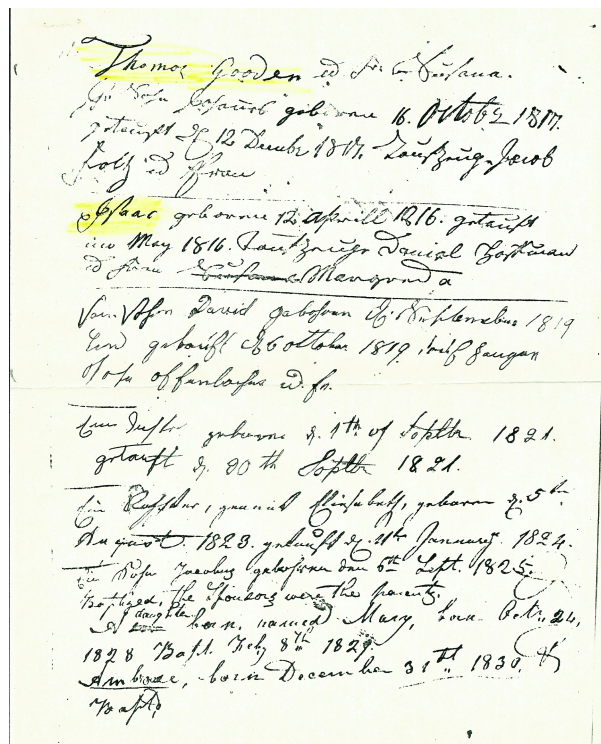 Thomas Gooden ud Fr. Susana.
Ihr Sohn geboren 16. Octobr 1817.
getauft d 12 Decmbr 1817. Taufzeug Jacob
Foltz ud Frau
Isaac geboren 12 Aprill 1816. getauft
im May 1816. Taufzeuge Daniel Hoffman
ud Frau Margreda
Sohn David gebohren d. Septembr 1819
Und getauft d 6 october 1819
ud. fr.
Eine geboren d. 1th of Septbr 1821.
getauft d. 30th Septbr 1821.
Ein Tochter, genant Elisabeth, geboren d. 5th
August 1823. getauft d. 4th January 1824.
Ein Sohn Jacob gebohren den 6th Sept. 1825.
Baptized, the Sponsors were the parents.
A daughter born, named Mary, born Octr. 24,
1828 Bapt. Feby 8th 1829.
Ambrose, born December 31st, 1830. &
Bapt,